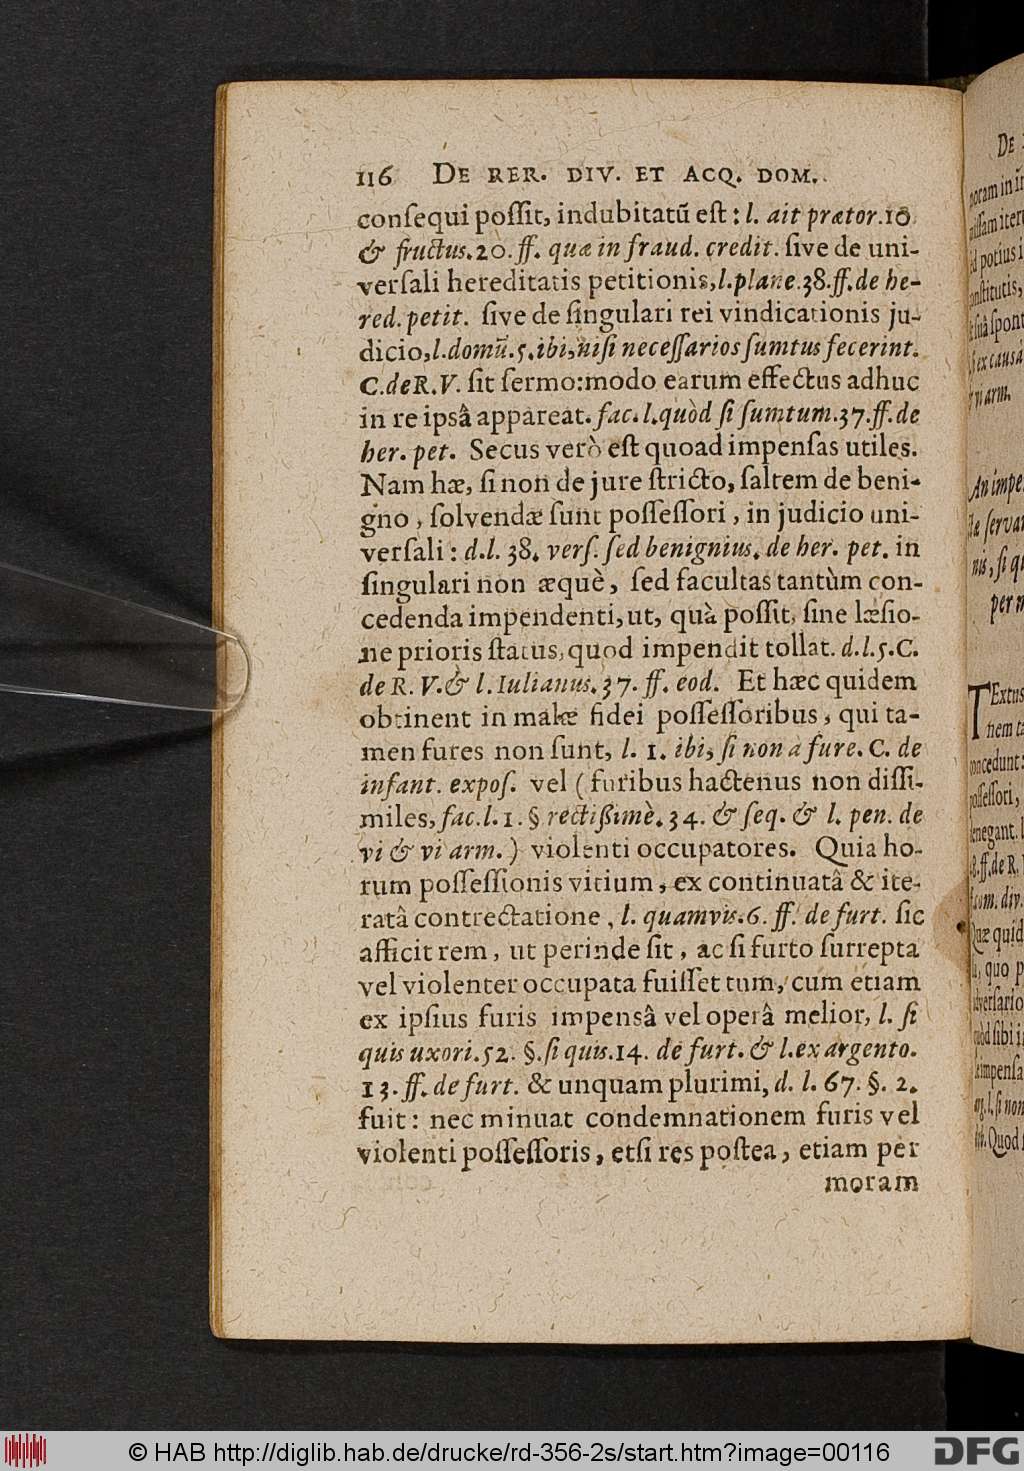 116 DE RER. DIV. ET ACQ. DOM.
conſequi poſſit, indubitatũ eſt : l. ait prætor.10
& fructus.20. ff. quæ in fraud. credit. ſive de uni-
verſali hereditatis petitionis, l. plane.38. ff. de he-
red. petit. ſive de ſingulari rei vindicationis ju-
dicio, l. domũ.5. ibi, niſi neceſſarios ſumtus fecerint.
C. de R. V. ſit ſermo: modo earum effectus adhuc
in re ipsâ appareat. fac. l. quòd ſi ſumtum.37. ff. de
her. pet. Secus verò eſt quoad impenſas utiles.
Nam hæ, ſi non de jure ſtricto, ſaltem de beni-
gno, ſolvendæ ſunt poſſeſſori, in judicio uni-
verſali : d. l. 38. verſ. ſed benignius. de her. pet. in
ſingulari non æquè, ſed facultas tantùm con-
cedenda impendenti, ut, quà poſſit, ſine læſio-
ne prioris ſtatus, quod impendit tollat. d. l. 5. C.
de R. V. & l. Iulianus. 37. ff. eod. Et hæc quidem
obtinent in malæ fidei poſſeſſoribus, qui ta-
men fures non ſunt, l. 1. ibi, ſi non à fure. C. de
infant. expoſ. vel ( furibus hactenus non diſſi-
miles, fac. l. 1. § rectißimè. 34. & ſeq. & l. pen. de
vi & vi arm. ) violenti occupatores. Quia ho-
rum poſſeſſionis vitium, ex continuatâ & ite-
ratâ contrectatione, l. quamvis. 6. ff. de furt. ſic
afficit rem, ut perinde ſit, ac ſi furto ſurrepta
vel violenter occupata fuiſſet tum, cum etiam
ex ipſius furis impensâ vel operâ melior, l. ſi
quis uxori. 52. §. ſi quis. 14. de furt. & l. ex argento.
13. ff. de furt. & unquam plurimi, d. l. 67. §. 2.
fuit : nec minuat condemnationem furis vel
violenti poſſeſſoris, etſi res poſtea, etiam per
moram
DE
noram in
id potius i
conſtitutis,
ſuâ ſpont
ſi ex causâ
vi arm.
An impe
læ ſervan
nis, ſi qu
per m
TExtus
nem ta
concedunt
poſſeſſori,
denegant. l
ff. de R. V
com. div.
Quæ quid
quo p
adverſario
quòd ſibi i
impenſa
l. ſi non
Quod
© HAB http://diglib.hab.de/drucke/rd-356-2s/start.htm?image=00116
DFG